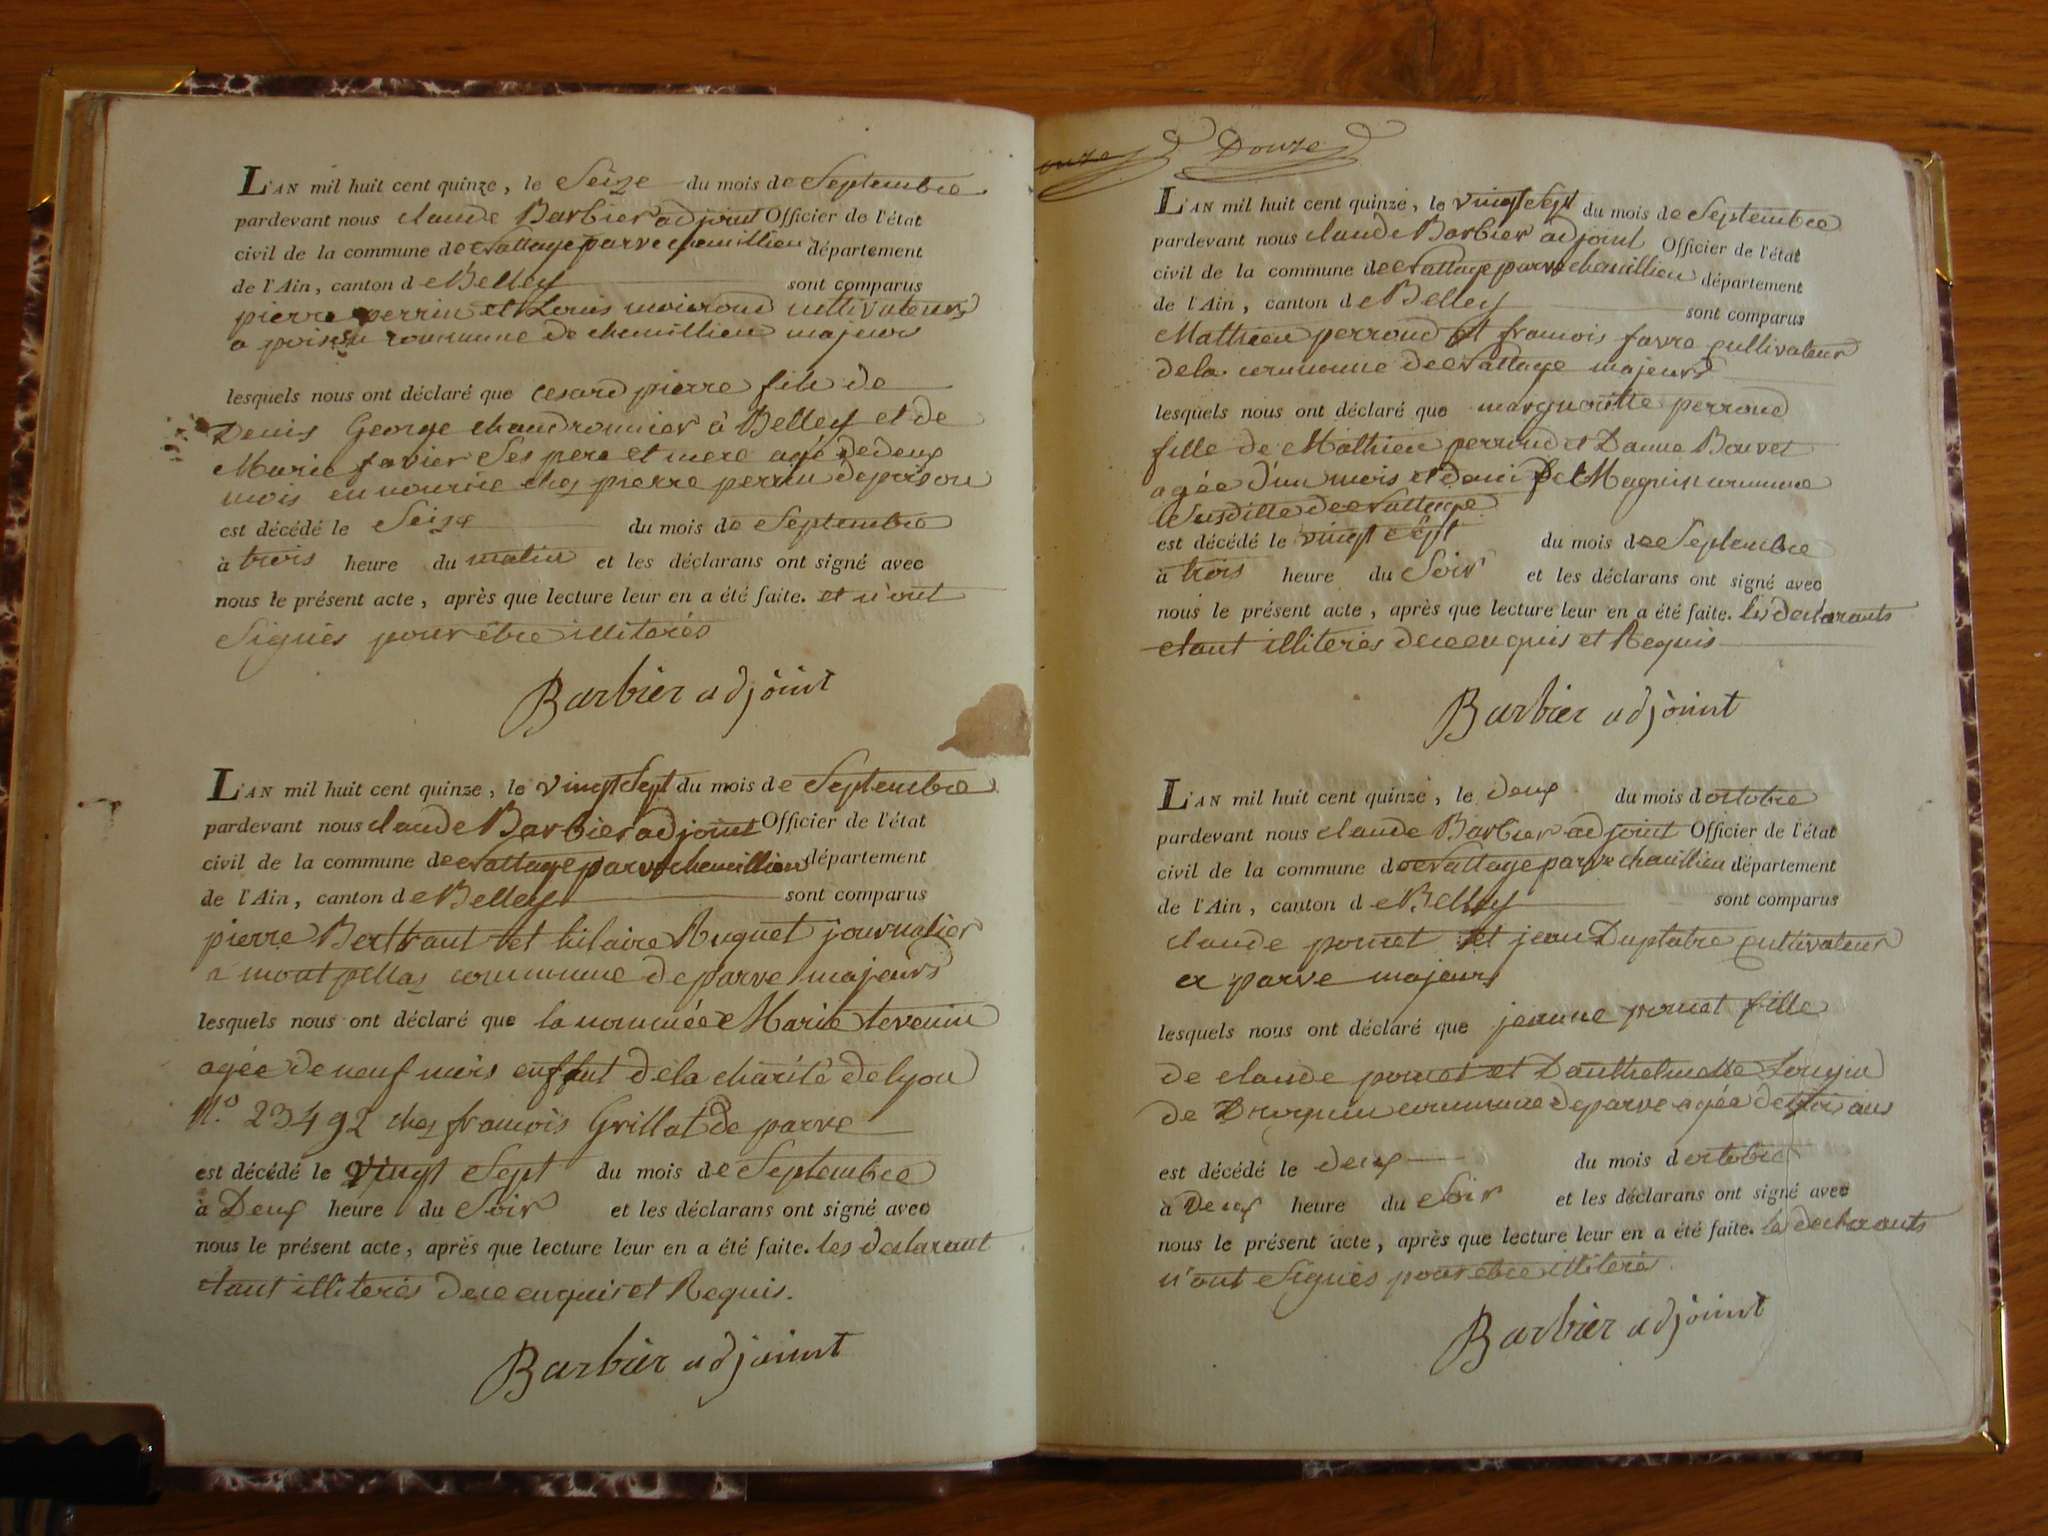 L'AN mil huit cent quinze, le Seize du mois de Septembre
pardevant nous claude Barbier adjoint Officier de l'état
civil de la commune de Nattage parve chemillieu département
de l'Ain, canton de Belley sont comparus
pierre perrin et Louis moiroud cultivateurs
a poisu commune de chemillieu majeur
lesquels nous ont déclaré que cesard pierre fils de
Denis George chaudronnier à Belley et de
Marie favier Ses pere et mere agé de deux
mois en nourice chez pierre perrin de
est décédé le Seize du mois de Septembre
à trois heure du matin et les déclarans ont signé avec
nous le présent acte, après que lecture leur en a été faite. et n'ont
Signés pour être illiterés
Barbier adjoint
L'AN mil huit cent quinze, le vingt Sept du mois de Septembre
pardevant nous claude Barbier adjoint Officier de l'état
civil de la commune de Nattage parve chemillieu département
de l'Ain, canton de Belley sont comparus
pierre Berttraut et hilaire Ruguet journalier
a montpellas commune de parve majeurs
lesquels nous ont déclaré que la nommée Marie tevenin
agée de neuf mois enffant de la charité de lyon
N.o 23492 chez francois Grillat de parve
est décédé le vingt Sept du mois de Septembre
à Deux heure du Soir et les déclarans ont signé avec
nous le présent acte, après que lecture leur en a été faite. les declarant
etant illiterés de ce enquis et Requis.
Barbier adjoint
Douze
L'AN mil huit cent quinze, le vingt Sept du mois de Septembre
pardevant nous claude Barbier adjoint Officier de l'état
civil de la commune de Nattage parve chemillieu département
de l'Ain, canton de Belley sont comparus
Mathieu perroud et francois favre cultivateur
de la commune de Nattage majeurs
lesquels nous ont déclaré que margueritte perroud
fille de Mathieu perroud et Danne Bouvet
agée d'un mois et demi de Magnin commune
Susditte de Nattage
est décédé le vingt Sept du mois de Septembre
à trois heure du Soir et les déclarans ont signé avec
nous le présent acte, après que lecture leur en a été faite. les declarants
etant illiterés de ce enquis et Requis
Barbier adjoint
L'AN mil huit cent quinze, le deux du mois doctobre
pardevant nous claude Barbier adjoint Officier de l'état
civil de la commune de Nattage parve chemillieu département
de l'Ain, canton de Belley sont comparus
claude pornet et jean Duplatre cultivateur
a parve majeurs
lesquels nous ont déclaré que jeanne pornet fille
de claude pornet et Danthelmette Longin
de commune de parve agée de ans
est décédé le deux du mois doctobre
à Deux heure du Soir et les déclarans ont signé avec
nous le présent acte, après que lecture leur en a été faite. les declarants
n'ont Signés pour etre illiterés
Barbier adjoint